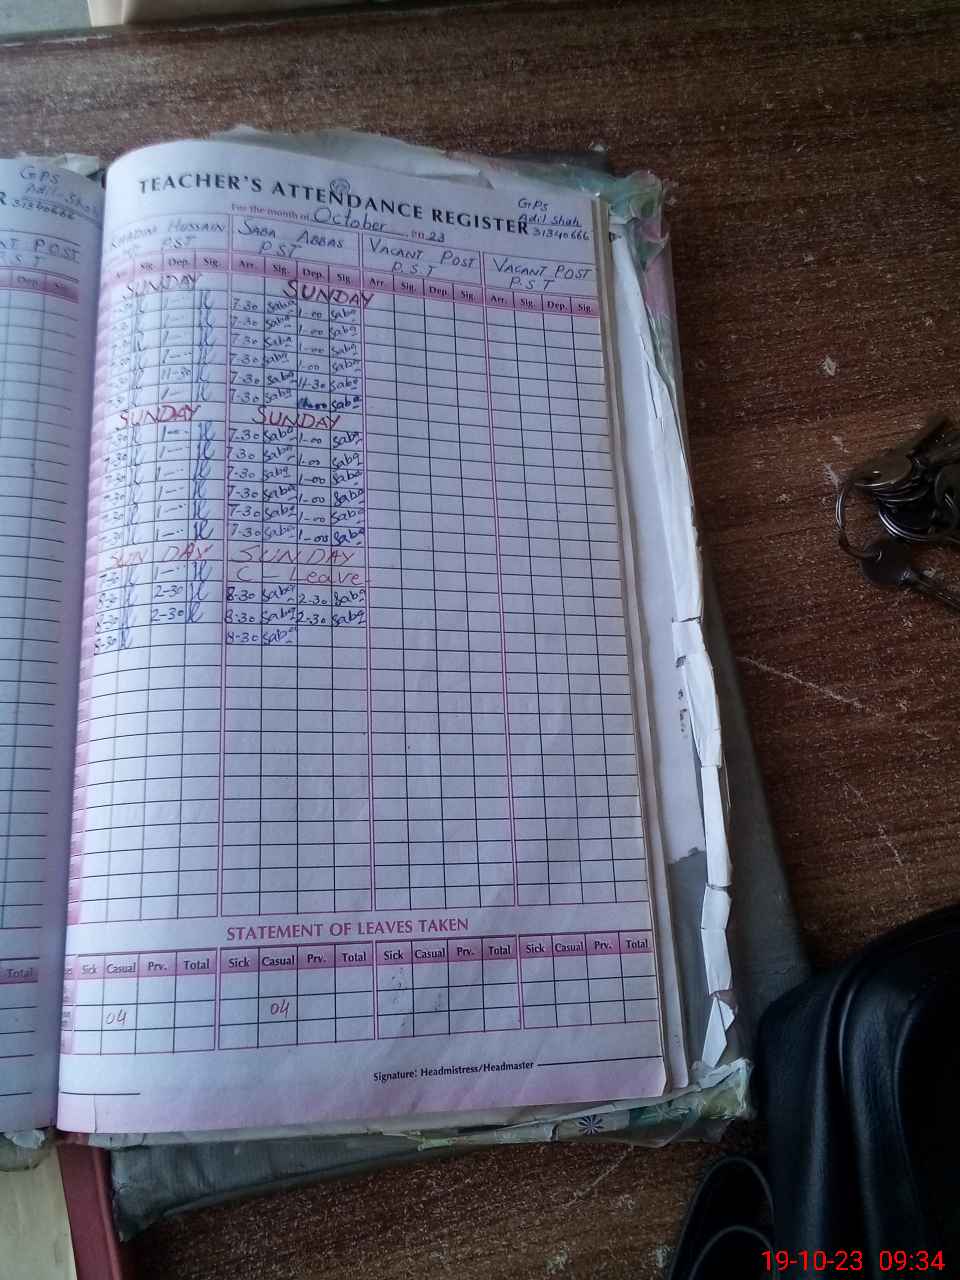 GPS
Adil Shah
31340666
ANT POST
S.T
Dep. Sig.
Total
TEACHER'S ATTENDANCE REGISTER
GPS
Adil Shah
31340666
For the month of October on 23
KHADIM HUSSAIN SABA ABBAS VACANT POST VACANT POST
P.S.T P.S.T P.S.T P.S.T
Arr. Sig. Dep. Sig. Arr. Sig. Dep. Sig. Arr. Sig. Dep. Sig. Arr. Sig. Dep. Sig.
SUNDAY SUNDAY
7-30 Saba 1-00 Saba
7-30 Saba 1-00 Saba
7-30 Saba 1-00 Saba
7-30 Saba 1-00 Saba
11-30 7-30 Saba 11-30 Saba
7-30 Saba Saba
SUNDAY SUNDAY
7-30 Saba 1-00 Saba
7-30 Saba 1-00 Saba
7-30 Saba 1-00 Saba
7-30 Saba 1-00 Saba
7-30 Saba 1-00 Saba
7-30 Saba 1-00 Saba
SUNDAY SUNDAY
7-30 C - Leave
8-30 2-30 8-30 Saba 2-30 Saba
8-30 2-30 8-30 Saba 2-30 Saba
8-30 8-30 Saba
STATEMENT OF LEAVES TAKEN
Sick Casual Prv. Total Sick Casual Prv. Total Sick Casual Prv. Total Sick Casual Prv. Total
04 04
Signature: Headmistress/Headmaster
19-10-23 09:34